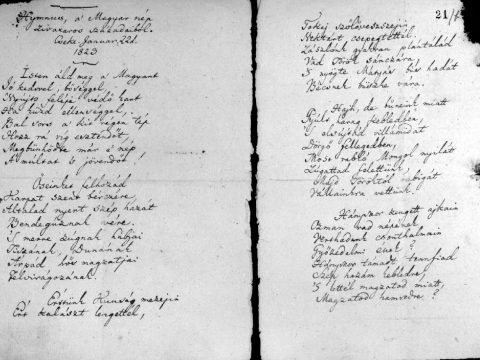 Hymnus, a' Magyar nép
zivataros századaiból.
Cseke. Januar. 22d.
1823
Isten áldd meg a' Magyart
Jó kedvvel, bőséggel,
Nyújts feléje védő kart
Ha küzd ellenséggel,
Bal sors a' kit régen tép
Hozz rá víg esztendőt,
Megbünhödte már e' nép
A' multat 's jövendőt!
Őseinket felhozád
Karpat szent bérczére,
Általad nyert szép hazát
Bendegúznak vére.
'S merre zúgnak habjai
Tiszának, Dunának,
Árpád hős magzatjai
Felvirágozának.
Értünk Kunság mezején
Ért kalászt lengettél,
21/
Tokaj szőlővesszein
Nektárt csepegtettél.
Zászlónk gyakran plántálád
Vad Török sánczára,
'S nyögte Mátyás bús hadát
Bécsnek büszke vára.
Hajh, de büneink miatt
Gyúlt harag kebledben,
'S elsujtád villámidat
Dörgő fellegedben,
Most rabló Mongol nyilát
Zúgattad felettünk,
Majd Töröktől rabigát
Vállainkra vettünk.
Hányszor zengett ajkain
Ozman vad népének
Vert hadunk csonthalmain
Győzedelmi ének!
Hányszor támadt tenfiad
Szép hazám kebledre,
'S lettél magzatod miatt,
Magzatod hamvvedre?